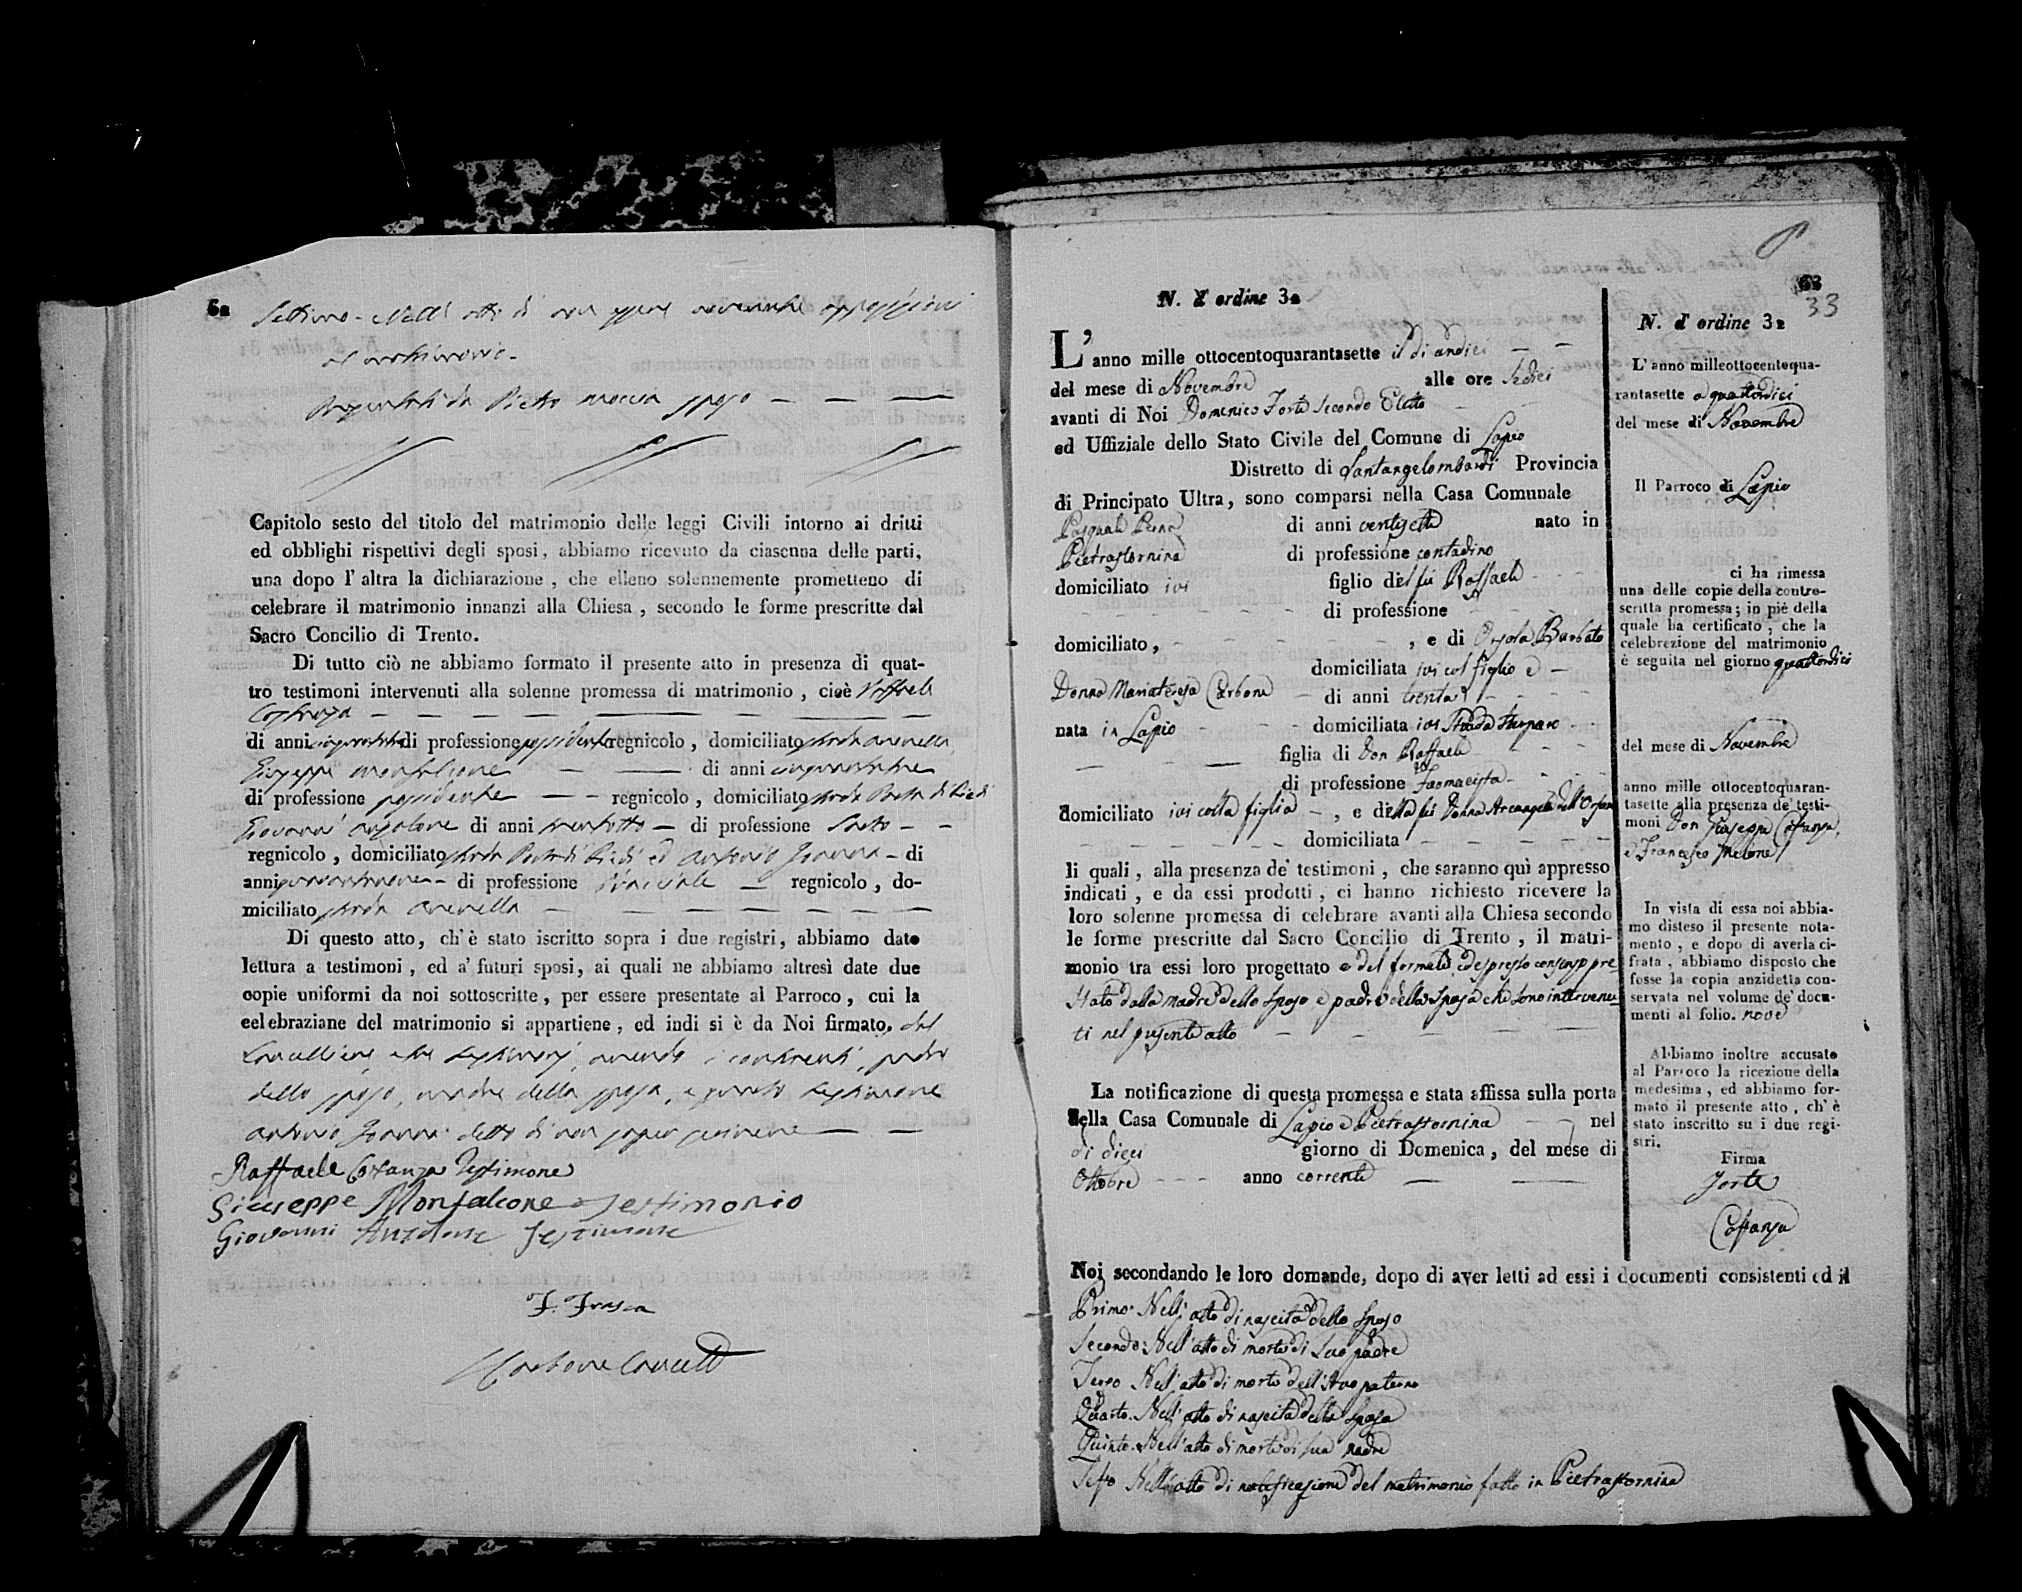 62
Settimo - Nell' atto di non essere avvenute opposizioni
al matrimonio -
Presentati da Pietro Moccia sposo
Capitolo sesto del titolo del matrimonio delle leggi Civili intorno ai dritti
ed obblighi rispettivi degli sposi, abbiamo ricevuto da ciascuna delle parti,
una dopo l'altra la dichiarazione, che elleno solennemente prometteno di
celebrare il matrimonio innanzi alla Chiesa, secondo le forme prescritte dal
Sacro Concilio di Trento.
Di tutto ciò ne abbiamo formato il presente atto in presenza di quat-
tro testimoni intervenuti alla solenne promessa di matrimonio, cioè Raffaele
Costanza
di anni di professione possidente regnicolo, domiciliato strada
Giuseppe Monfalcone di anni
di professione possidente regnicolo, domiciliato strada Porta di Piedi
Giovanni di anni trentotto di professione Sarto
regnicolo, domiciliato strada Porta di Piedi ed Antonio - di
anni - di professione regnicolo, do-
miciliato strada
Di questo atto, ch'è stato iscritto sopra i due registri, abbiamo dato
lettura a testimoni, ed a' futuri sposi, ai quali ne abbiamo altresì date due
copie uniformi da noi sottoscritte, per essere presentate al Parroco, cui la
celebraziane del matrimonio si appartiene, ed indi si è da Noi firmato, dal
Cancelliere e da testimonj, avendo i contraenti, padre
dello sposo, madre della sposa, e quarto testimone
Antonio detto di non sapere scrivere
Raffaele Costanza Testimone
Giuseppe Monfalcone Testimonio
Giovanni Testimone
F. Frasca
Carbone Cancell
63
33
N. d' ordine 32
L'anno mille ottocentoquarantasette il di undici
del mese di Novembre alle ore sedici
avanti di Noi Domenico Forte Secondo Eletto
ed Uffiziale dello Stato Civile del Comune di Lapio
Distretto di Santangelombardi Provincia
di Principato Ultra, sono comparsi nella Casa Comunale
Pasquale Penna di anni ventisette nato in
Pietrastornina di professione contadino
domiciliato ivi figlio del fù Raffaele
di professione
domiciliato, , e di Orsola Barbato
domiciliata ivi col figlio e
Donna Mariateresa Carbone di anni trenta
nata in Lapio domiciliata ivi Strada
figlia di Don Raffaele
di professione Farmacista
domiciliato ivi colla figlia , e della fù Donna Arcangela dell'
domiciliata
li quali, alla presenza de' testimoni, che saranno quì appresso
indicati, e da essi prodotti, ci hanno richiesto ricevere la
loro solenne promessa di celebrare avanti alla Chiesa secondo
le forme prescritte dal Sacro Concilio di Trento, il matri-
monio tra essi loro progettato e del formale, ed espresso consenso pre
stato dalla madre dello sposo e padre della sposa che sono intervenu-
ti nel presente atto
La notificazione di questa promessa e stata affissa sulla porta
della Casa Comunale di Lapio e Pietrastornina nel
di dieci giorno di Domenica, del mese di
Ottobre anno corrente
N. d' ordine 32
L'anno milleottocentoqua-
rantasette a quattordici
del mese di Novembre
Il Parroco di Lapio
ci ha rimessa
una delle copie della contro-
scritta promessa; in piè della
quale ha certificato, che la
celebrezione del matrimonio
è seguita nel giorno quattordici
del mese di Novembre
anno mille ottocentoquaran-
tasette alla presenza de' testi-
moni Don Giuseppe Costanza,
e Francesco Melone
In vista di essa noi abbia-
mo disteso il presente nota-
mento, e dopo di averla ci-
frata, abbiamo disposto che
fosse la copia anzidetta con-
servata nel volume de' docu-
menti al folio. nove
Abbiamo inoltre accusato
al Parroco la ricezione della
medesima, ed abbiamo for-
mato il presente atto, ch'è
stato inscritto su i due regi-
stri.
Firma
Forte
Costanza
Noi secondando le loro domande, dopo di aver letti ad essi i documenti consistenti ed il
Primo: Nell' atto di nascita dello sposo
Secondo: Nell' atto di morte di suo padre
Terzo Nell' atto di morte dell' Avo paterno
Quarto. Nell' atto di nascita della Sposa
Quinto: Nell' atto di morte di sua madre
Sesto Nell' atto di notificazione del matrimonio fatto in Pietrastornina